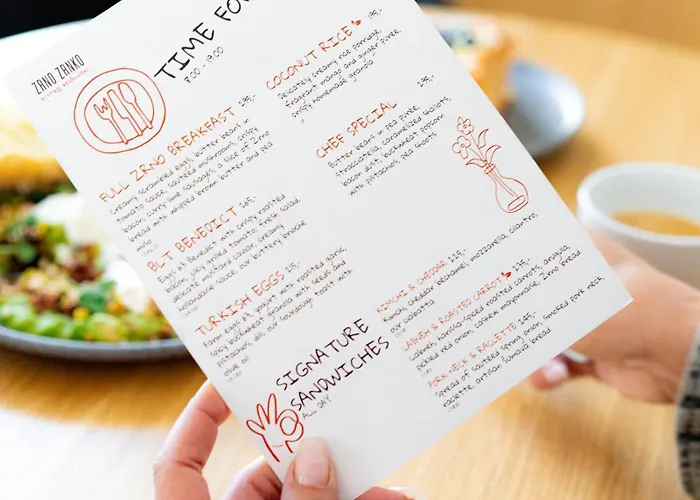 ZRNO ZRNKO
TIME FO
8:00 - 19:00
FULL ZRNO BREAKFAST
Creamy scrambled eggs, butter beans in
tomato sauce, sautéed mushrooms, crispy
bacon, curry lime sausages, a slice of Zrno
bread with whipped brown butter and pea
miso
BLT BENEDICT 265,-
Eggs Benedict with crispy roasted
bacon, juicy grilled tomato, fresh salad,
delicate mustard caviar, creamy
hollandaise sauce, our buttery brioche
TURKISH EGGS
Farm eggs, yogurt with roasted garlic,
spicy buckwheat granola with seeds and
pistachios, dill, our sourdough toast with
olive oil
COCONUT RICE 195,-
Delicately creamy rice porridge,
fragrant mango and ginger puree,
crispy homemade granola
CHEF SPECIAL 235,-
Butter beans in pea puree,
stracciatella, caramelized shallots,
bacon dust, buckwheat popcorn
with pistachios, pea shoots
SIGNATURE
SANDWICHES
ALL DAY
KIMCHI & CHEDDAR 225,-
Kimchi, cheddar bechamel, mozzarella, cilantro,
our ciabatta
LABNEH & ROASTED CARROT 235,-
Labneh, harissa-spiced roasted carrots, arugula,
pickled red onion, cashew mayonnaise, Zrno bread
PORK NECK & RACLETTE 245,-
Spread of sautéed spring onion, smoked pork neck,
raclette, artisan Šumava bread